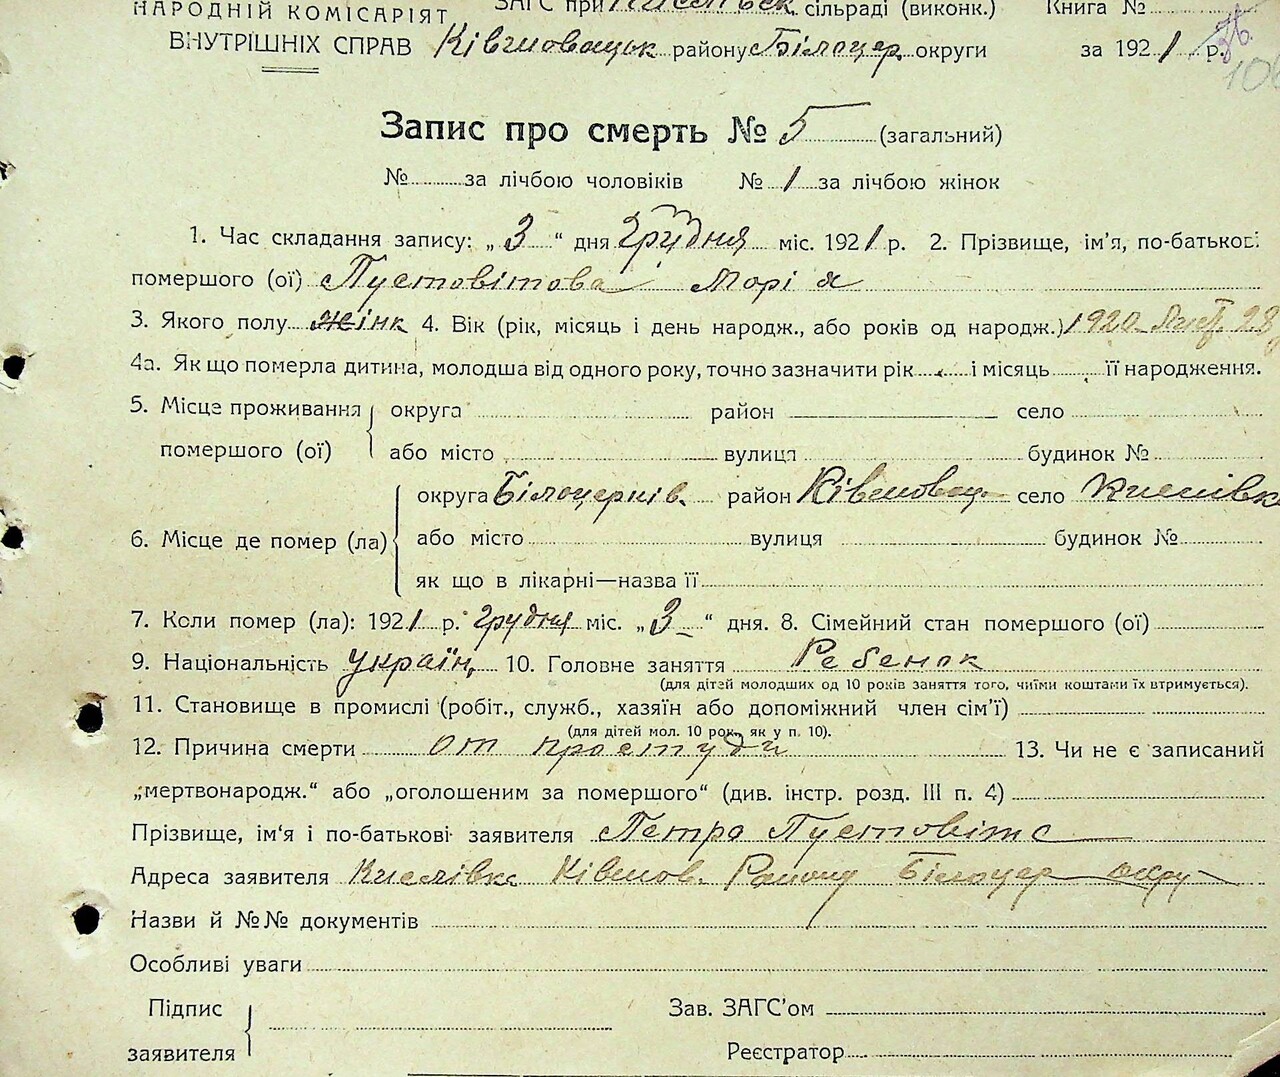 НАРОДНІЙ КОМІСАРІЯТ ЗАГС при сільраді (виконк.) Книга №
ВНУТРІШНІХ СПРАВ Ківшовацьк району Білоцер. округи за 1921 р.
Запис про смерть № 5 (загальний)
№ за лічбою чоловіків № 1 за лічбою жінок
1. Час складання запису: „ 3 “ дня Грудня міс. 1921 р. 2. Прізвище, ім'я, по-батькові
помершого (ої) Пустовітова Марія
3. Якого полу жінк 4. Вік (рік, місяць і день народж., або років од народж.) 1920 Лист. 28
4а. Як що померла дитина, молодша від одного року, точно зазначити рік і місяць її народження.
5. Місце проживання округа район село
помершого (ої) або місто вулиця будинок №
округа Білоцерків. район Ківшовац село Кислівка
6. Місце де помер (ла) або місто вулиця будинок №
як що в лікарні—назва її
7. Коли помер (ла): 1921 р. Грудня міс. „ 3 “ дня. 8. Сімейний стан помершого (ої)
9. Національність україн. 10. Головне заняття Ребенок
(для дітей молодших од 10 років заняття того, чиїми коштами їх втримується).
11. Становище в промислі (робіт., служб., хазяїн або допоміжний член сім'ї)
(для дітей мол. 10 рок., як у п. 10).
12. Причина смерти от простуди 13. Чи не є записаний
„мертвонародж.“ або „оголошеним за помершого“ (див. інстр. розд. III п. 4)
Прізвище, ім'я і по-батькові заявителя Петро Пустовіт
Адреса заявителя Кислівка Ківшов. Району Білоцер окру
Назви й №№ документів
Особливі уваги
Підпис Зав. ЗАГС'ом
заявителя Реєстратор